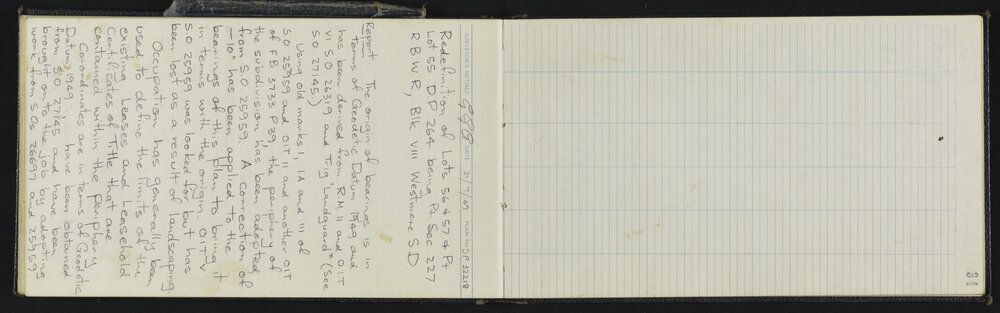 SURVEYOR'S INITIALS DATE 21/7/69 PLAN NO. DP 32218
Redefinition of Lots 56 & 57 & Pt
Lot 55 DP 264 being Pt Sec 227
R B W R, Blk VIII Westmere S.D.
Report The origin of bearings is in
terms of Geodetic Datum 1949 and
has been derived from RM 11 and OIT
VI S.O 26319 and Trig "Landguard" (See
S.O 27145)
Using old marks I, IA and III of
S.O 25959 and OIT II and another OIT
of FB 3733 P39, the periphery of
the subdivision, has been adopted
from S.O 25959. A correction of
-10" has been applied to the
bearings of this plan to bring it
in terms with the origin. OIT V
S.O 25959 was looked for but has
been lost as a result of landscaping.
Occupation has generally been
used to define the limits of the
existing Leases and Leasehold
Certificates of Title that are
contained within the periphery
Co-ordinates are in terms of Geodetic
Datum 1949 have been obtained
from S.O 27145 and have been
brought on to the job by adopting
work from S.Os 26697 and 25959.
34